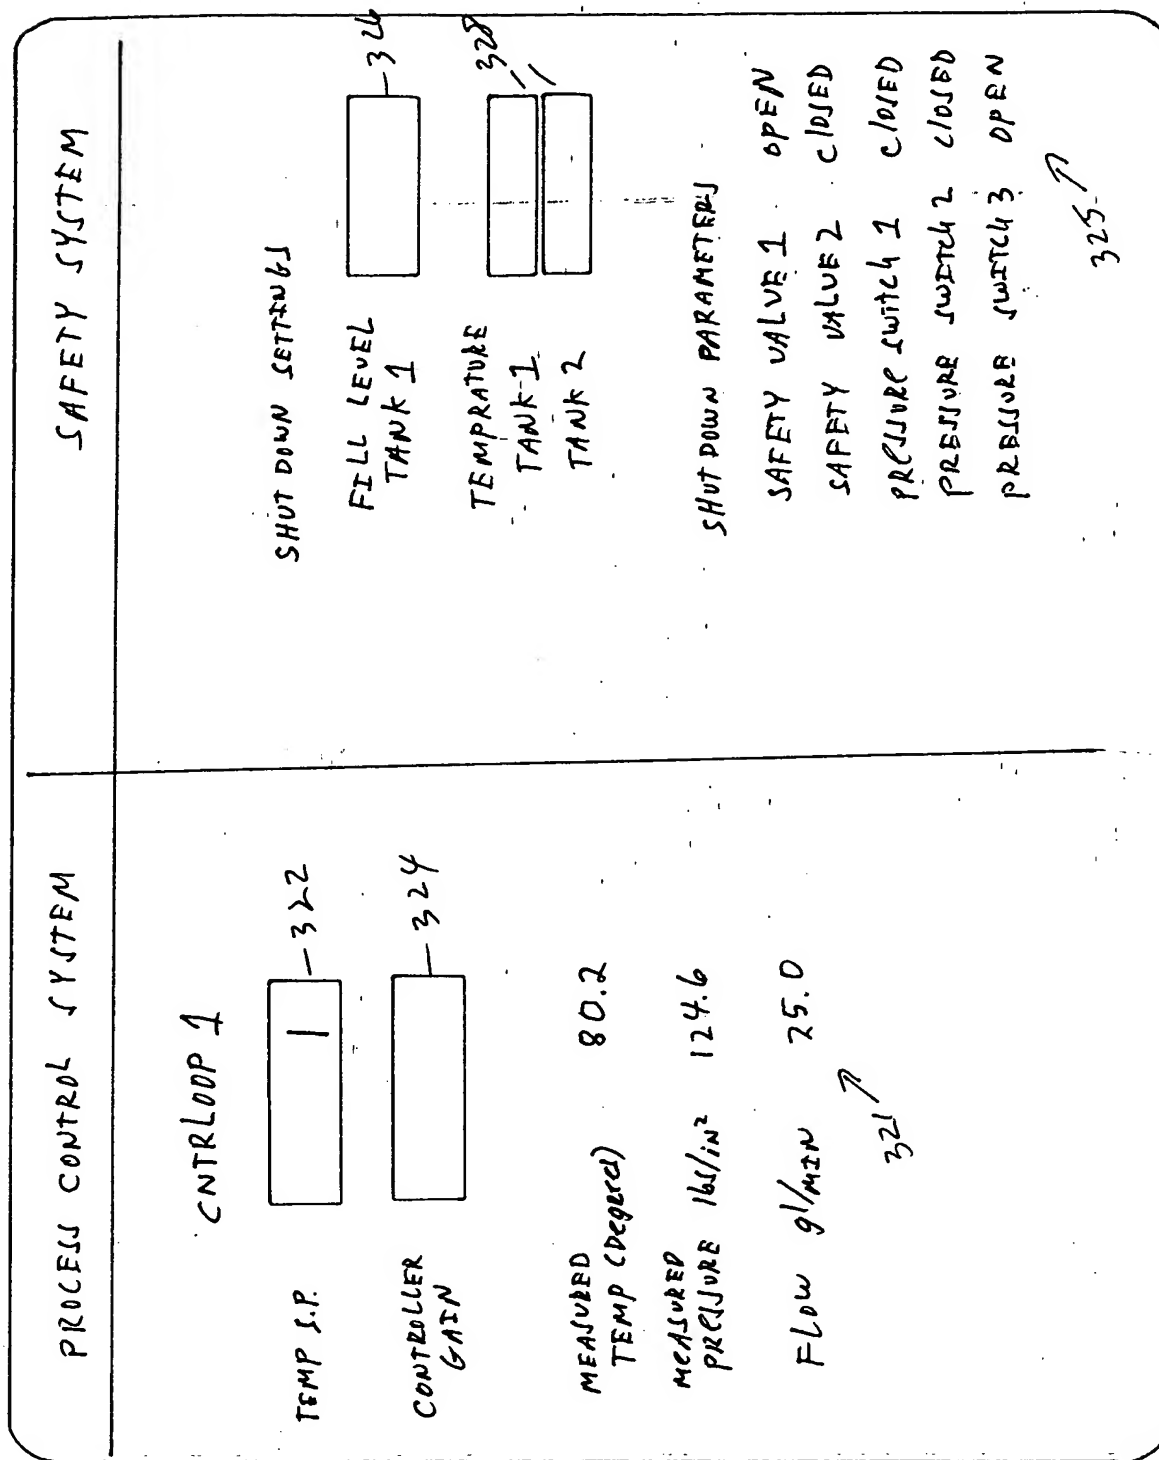 PROCESS CONTROL SYSTEM
CNTRLOOP 1
TEMP S.P.
322
CONTROLLER
GAIN
324
MEASURED
TEMP (Degrees) 80.2
MEASURED
PRESSURE lbs/in² 124.6
FLOW gl/MIN 25.0
321
SAFETY SYSTEM
SHUT DOWN SETTINGS
FILL LEVEL
TANK 1
326
TEMPRATURE
328
TANK 1
TANK 2
SHUT DOWN PARAMETERS
SAFETY VALUE 1 OPEN
SAFETY VALUE 2 CLOSED
PRESSURE SWITCH 1 CLOSED
PRESSURE SWITCH 2 CLOSED
PRESSURE SWITCH 3 OPEN
325